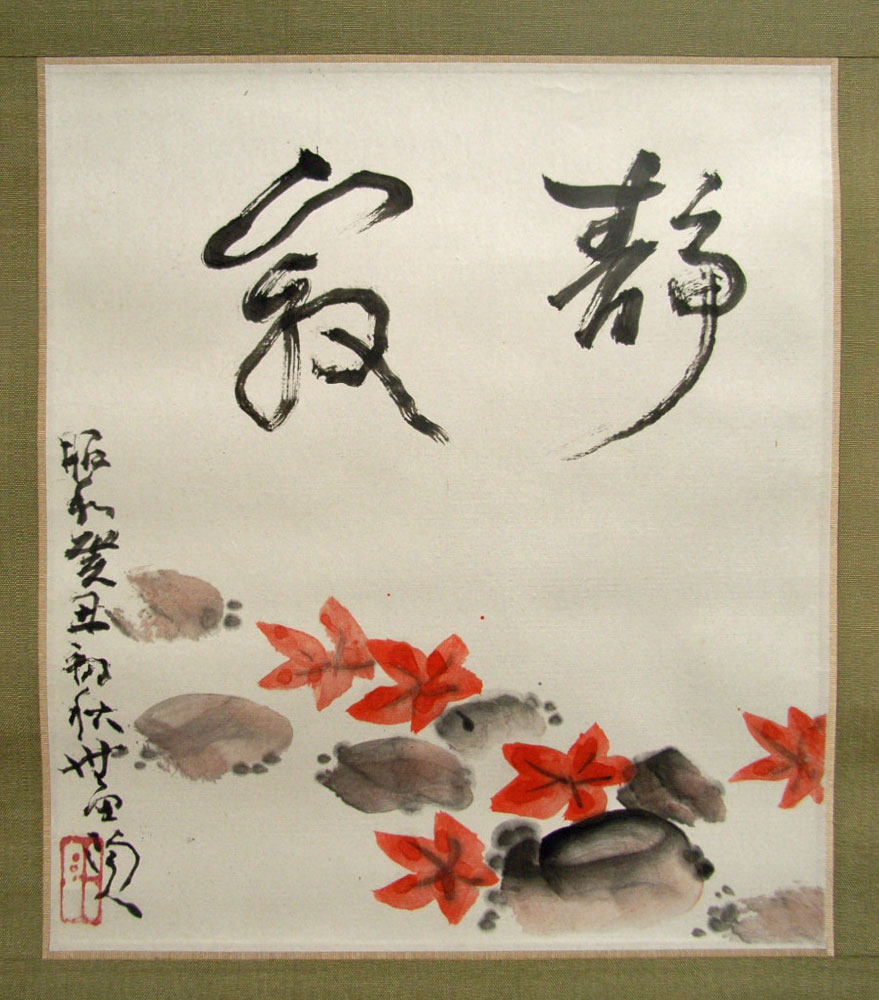 静寂
昭和癸丑初秋